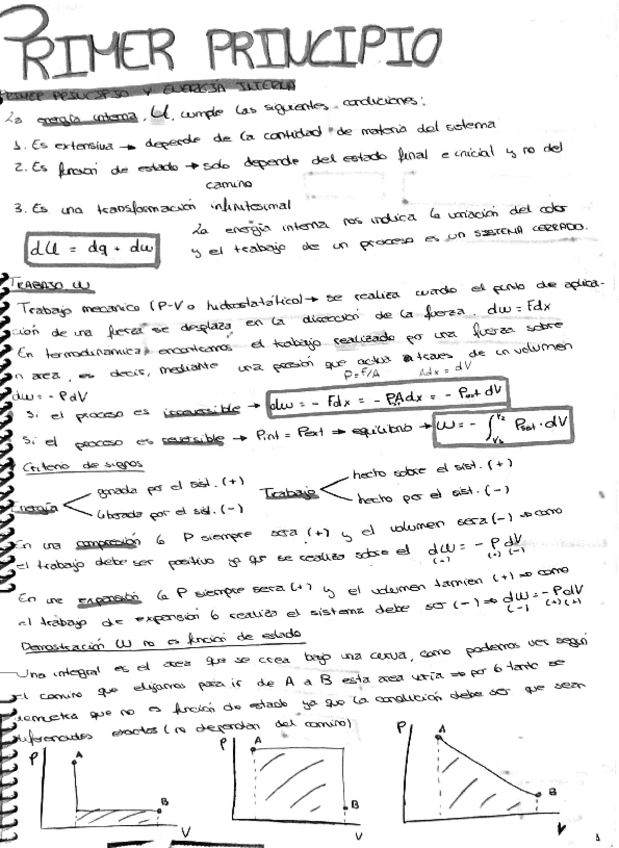 PRIMER PRINCIPIO
PRIMER PRINCIPIO Y ENERGÍA INTERNA
La energía interna, U, cumple las siguientes condiciones:
1. Es extensiva → depende de la cantidad de materia del sistema
2. Es función de estado → solo depende del estado final e inicial y no del
camino
3. Es una transformación infinitesimal
La energía interna nos indica la variación del calor
dU = dq + dw
y el trabajo de un proceso es un SISTEMA CERRADO.
TRABAJO, W
Trabajo mecanico (P-V o hidrostatático) → se realiza cuando el punto de aplica-
ción de una fuerza se desplaza en la dirección de la fuerza. dw = Fdx
En termodinamica, encontramos el trabajo realizado por una fuerza sobre
n area, es decir, mediante una presión que actua a traves de un volumen
P=F/A Adx = dV
dw = - PdV
Si el proceso es irreversible → dw = - Fdx = - PAdx = - Pext dV
Si el proceso es reversible → Pint = Pext ⇒ equilibrio → W = - ∫ Pext · dV
V₂
V₁
Criterio de signos
Energía
ganada por el sist. (+)
liberada por el sist. (-)
Trabajo
hecho sobre el sist. (+)
hecho por el sist. (-)
En una compresión la P siempre sera (+) y el volumen sera (-) ⇒ como
el trabajo debe ser positivo ya que se realiza sobre el dw = - P dV
En una expansión la P siempre sera (+) y el volumen tamien (+) ⇒ como
el trabajo de expansión lo realiza el sistema debe ser (-) ⇒ dw = - PdV
(-) (+)(+)
Demostración W no es función de estado
Una integral es el area que se crea bajo una curva, como podemos ver según
el camino que elijamos para ir de A a B esta area varia ⇒ por lo tanto se
demuestra que no es función de estado ya que la condición debe ser que sean
diferenciales exactas (no dependan del camino)
P A B V
P A B V
P A B V
1